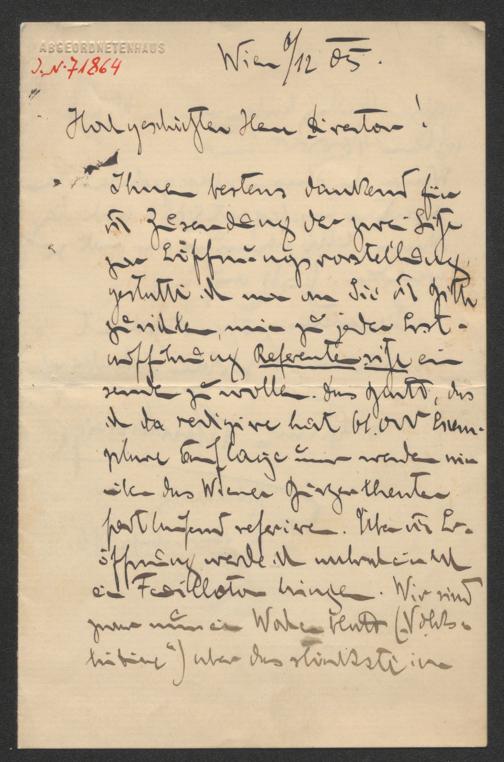 ABGEORDNETENHAUS
J. N. 71864
Wien 6/12 05.
Hochgeschätzter Herr Direktor!
Ihnen bestens dankend für
die Zusendung der zwei Sitze
zur Eröffnungsvorstellung,
gestatte ich mir an Sie die Bitte
zu richten, mir zu jeder Erst-
aufführung Referentensitze ein
senden zu wollen. Das Blatt, das
ich da redigire hat 61.000 Exem-
plare Auflage und werden wir
über das Wiener Bürgertheater
fortlaufend referiren. Über die Er-
öffnung werde ich wahrscheinlich
ein Feuilleton bringen. Wir sind
zwar nur ein Wochenblatt ("Volks-
") aber das stärkste in